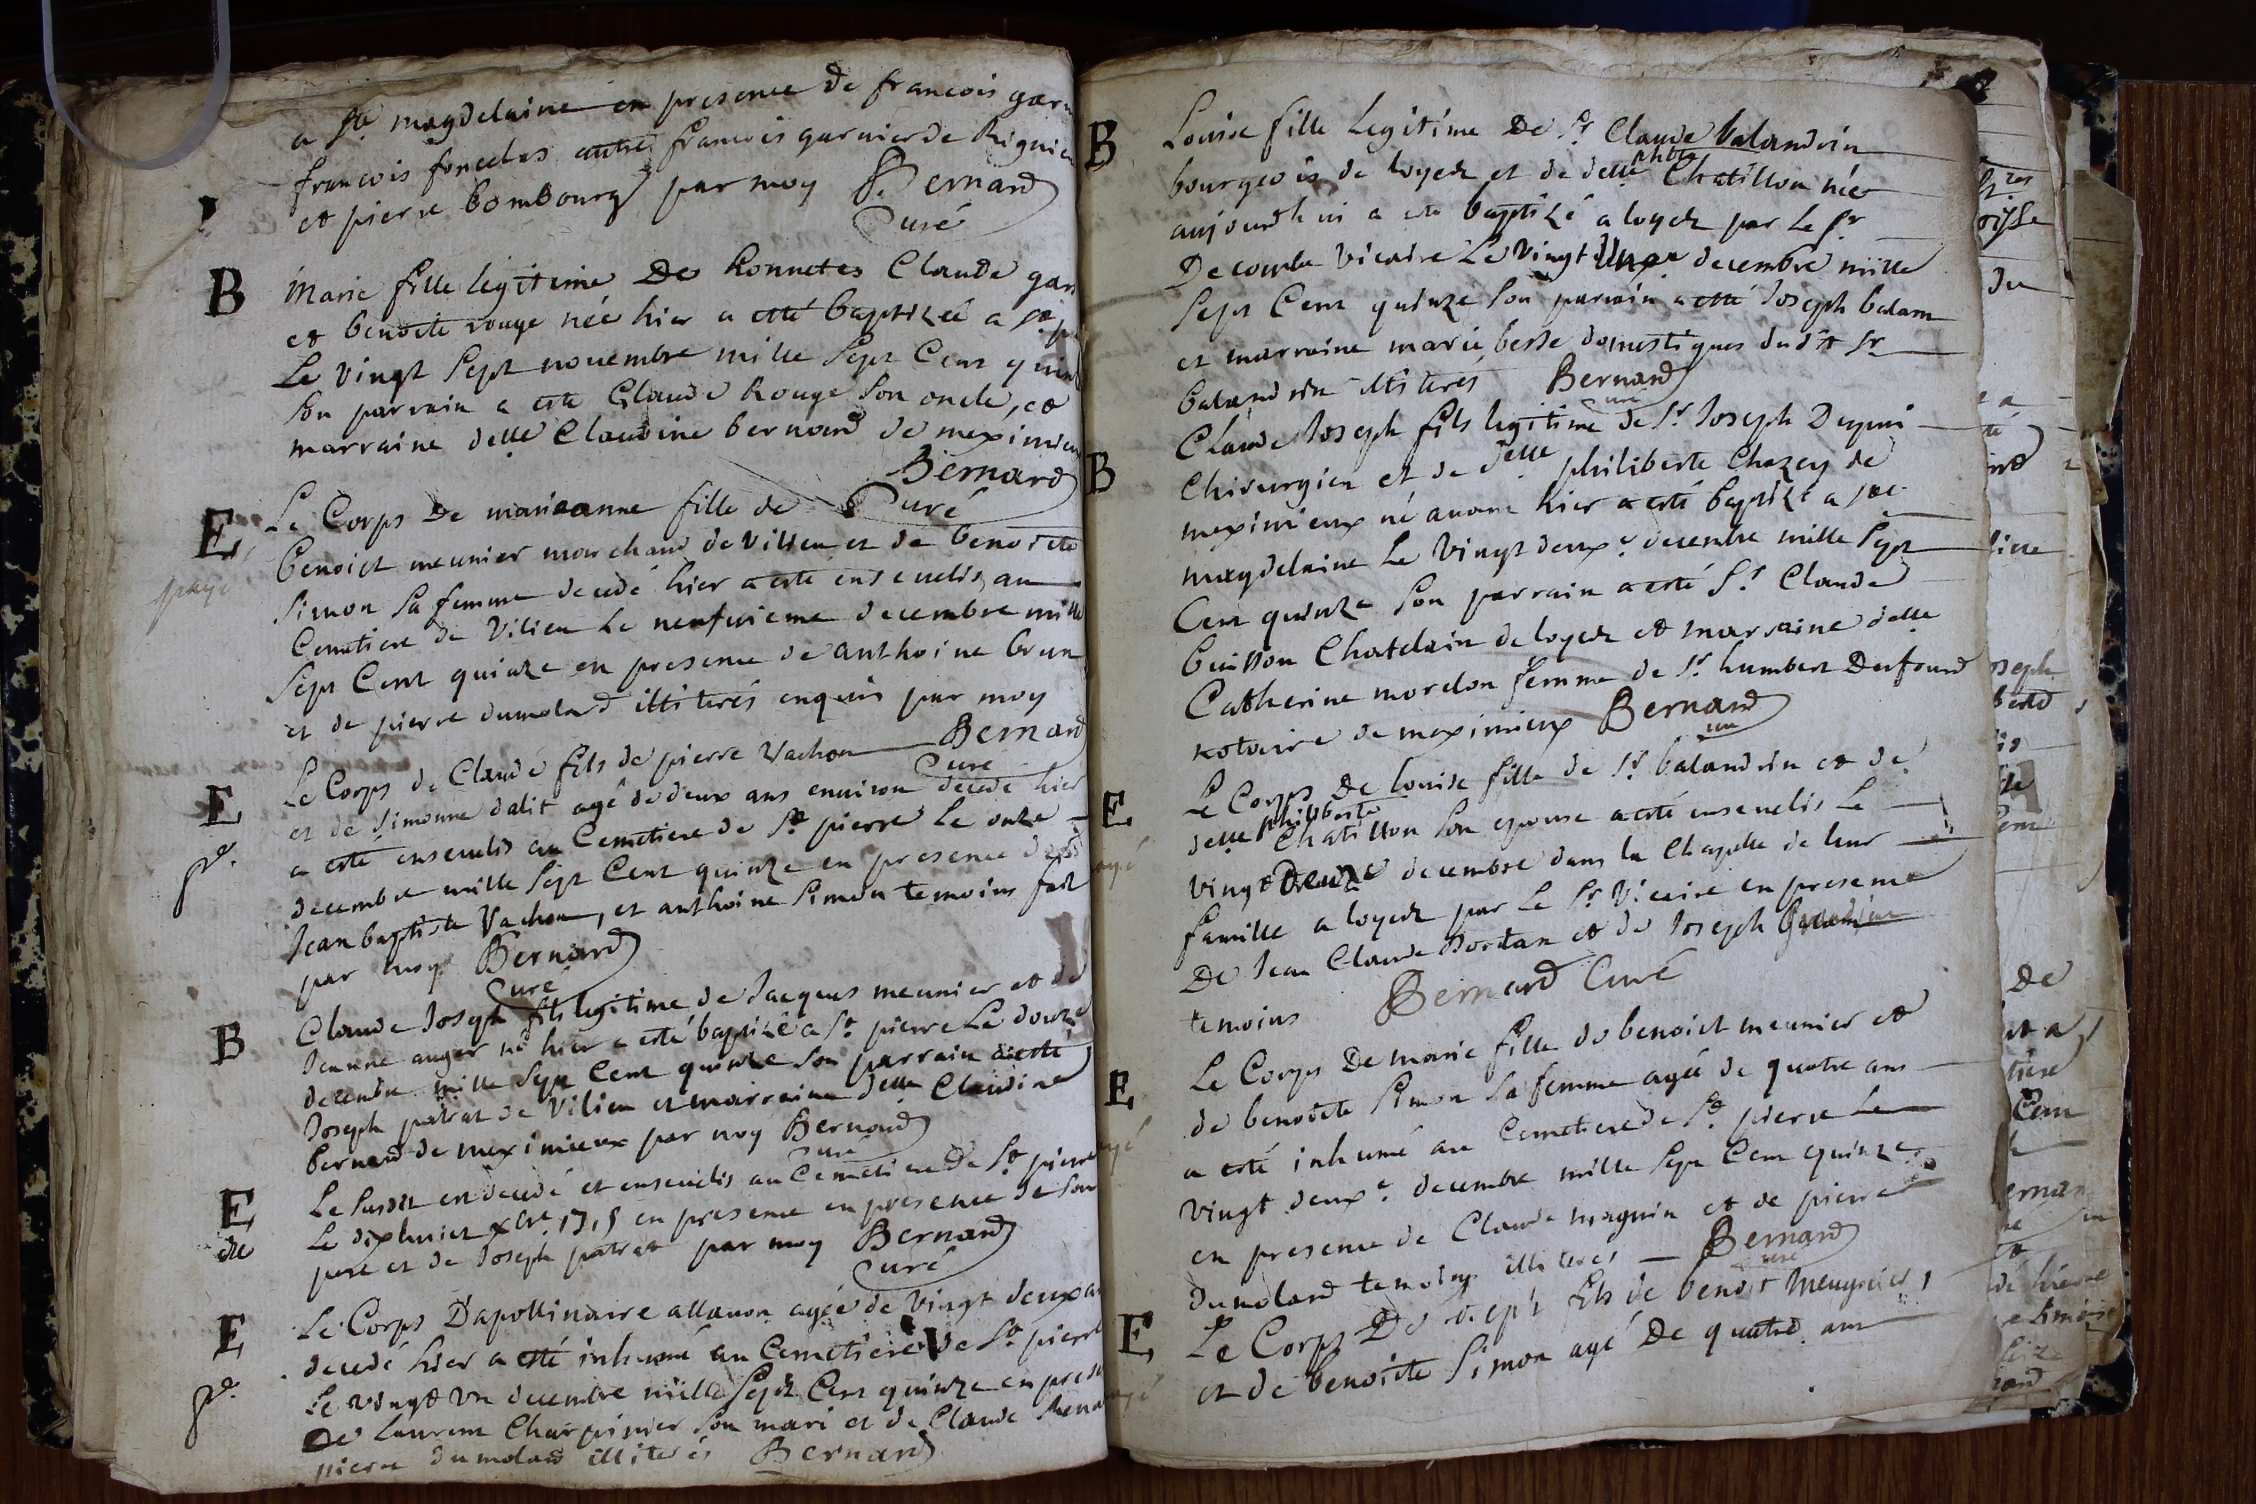 a Ste magdelaine en presence de francois garn
francois foncelas autre francois garnier de Rignieu
et pierre bombourg par moy Bernard
Curé
B Marie fille legitime De honnetes Claude gar
et benoite rouge née hier a esté baptizeé a St pi
Le vingt Sept novembre mille Sept Cent quin
Son parrain a esté Claude Rouge Son oncle, et
marraine delle Claudine bernard de meximieu
Bernard
Curé
E Le Corps De marieanne fille de
payé
benoict meunier marchand de villieu et de benoite
Simon Sa femme decedé hier a esté ensevelis au
Cemetiere de Vilieu Le neufvieme decembre mille
Sept Cent quinze en presence de anthoine brun
et de pierre dumolard illiterés enquis par moy
Bernard
Curé
E Le Corps de Claude fils de pierre Vachon
et de Simonne dalit agé de deux ans environ decedé hier
a esté ensevelis au Cemetiere de St pierre Le onze
decembre mille Sept Cent quinze en presence de
Jean baptiste Vachon, et anthoine Simon temoins fait
par moy Bernard
Curé
B Claude Joseph fils legitime de Jacques meunier et de
Jeanne auger né hier a esté baptizé a St pierre Le douze
decembre mille Sept Cent quinze Son parrain a esté
Joseph patrat de Vilieu et marraine delle Claudine
bernard de meximieux par moy Bernard
Curé
E Le Susdit est decedé et ensevelis au Cemetiere De St pierre
Le dixhuict xbre 1715 en presence en presence de Son
pere et de Joseph patrat par moy Bernard
Curé
E Le Corps D'apollinaire allanon agée de vingt deux an
decedé hier a esté inhumé au Cemetiere de St pierre
Le vingt un decembre mille Sept Cent quinze en prese
De Laurent Charpinier Son mari et de Claude
pierre dumolard illiterés Bernard
B Louise fille Legitime De Sr Claude balandrin
bourgeois de loyer et de delle phbte Chatillon née
aujourdhui a esté baptizé a loyer par Le Sr
De combe vicaire Le vingt decembre mille
Sept Cent quinze Son parrain a esté Joseph balam
et marraine marie besse domestiques dudit Sr
balandrin illiterés Bernard
Curé
B Claude Joseph fils legitime de Sr Joseph Dupui
Chirurgien et de delle philiberte Chazey de
meximieux né avant hier a esté baptizé a Ste
magdelaine Le Vingt deuxe decembre mille Sept
Cent quinze Son parrain a esté Sr Claude
buisson Chatelain de loyer et marraine delle
Catherine morelon femme de Sr humbert
notaire de meximieux Bernard
Curé
E Le Corps De louise fille de Sr balandrin et de
delle philiberte Chatillon Son epouse a esté ensevelis Le
vingt decembre dans la Chapelle de leur
famille a loyer par Le Sr Vicaire en presence
De Jean Claude Jordan et de Joseph
temoins Bernard Curé
E Le Corps De marie fille de benoict meunier et
de benoite Simon Sa femme ageé de quatre ans
a esté inhumé au Cemetiere de St pierre Le
vingt deuxe decembre mille Sept Cent quinze
en presence de Claude magnin et de pierre
dumolard temoins illiterés Bernard
Curé
E Le Corps De Joseph fils de benoit
et de benoite Simon agé De quatre ans